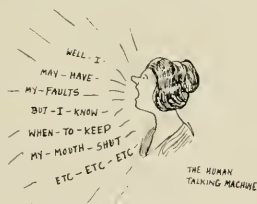 WELL - I -
MAY - HAVE -
MY - FAULTS -
BUT - I - KNOW -
WHEN - TO - KEEP
MY - MOUTH - SHUT
ETC - ETC - ETC
THE HUMAN
TALKING MACHINE